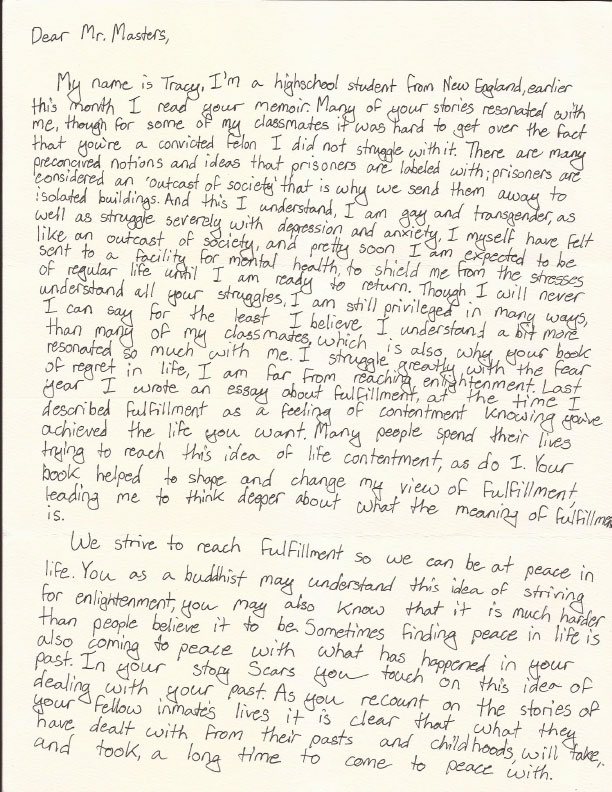 Dear Mr. Masters,
My name is Tracy, I'm a highschool student from New England, earlier
this month I read your memoir. Many of your stories resonated with
me, though for some of my classmates it was hard to get over the fact
that you're a convicted felon I did not struggle with it. There are many
preconcived notions and ideas that prisoners are labeled with; prisoners are
considered an 'outcast of society' that is why we send them away to
isolated buildings. And this I understand, I am gay and transgender, as
well as struggle severely with depression and anxiety, I myself have felt
like an outcast of society, and pretty soon I am expected to be
sent to a facility for mental health, to shield me from the stresses
of regular life until I am ready to return. Though I will never
understand all your struggles, I am still privileged in many ways,
I can say for the least I believe I understand a bit more
than many of my classmates, which is also why your book
resonated so much with me. I struggle greatly with the fear
of regret in life, I am far from reaching enlightenment. Last
year I wrote an essay about fulfillment, at the time I
described fulfillment as a feeling of contentment knowing you've
achieved the life you want. Many people spend their lives
trying to reach this idea of life contentment, as do I. Your
book helped to shape and change my view of fulfillment,
leading me to think deeper about what the meaning of fulfillment
is.
We strive to reach fulfillment so we can be at peace in
life. You as a buddhist may understand this idea of striving
for enlightenment, you may also know that it is much harder
than people believe it to be. Sometimes finding peace in life is
also coming to peace with what has happened in your
past. In your story Scars you touch on this idea of
dealing with your past. As you recount on the stories of
your fellow inmates lives it is clear that what they
have dealt with from their pasts and childhoods, will take,
and took, a long time to come to peace with.